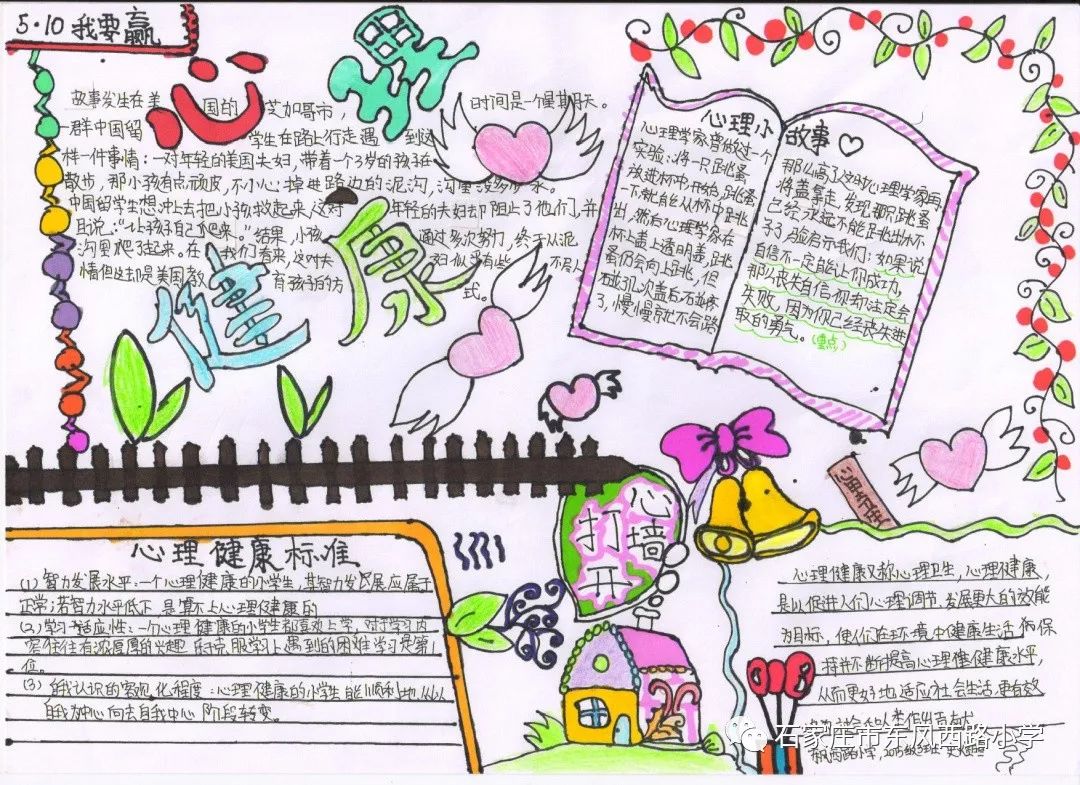 5·10 我要赢
心理健康
故事发生在美国的芝加哥市，时间是一个星期天。
一群中国留学生在路上行走遇到这
样一件事情：一对年轻的美国夫妇，带着一个3岁的孩子在
散步，那小孩有点顽皮，不小心掉进路边的泥沟，沟里没多少水。
中国留学生想冲上去把小孩救起来，这对年轻的夫妇却阻止了他们，并
且说：“让孩子自己爬来。”结果，小孩通过多次努力，终于从泥
沟里爬了起来。在我们看来，这对夫妇似乎有些不尽人
情但这却是美国教育孩子的方式。
心理小故事
心理学家曾做过一个
实验：将一只跳蚤
放进杯中开始，跳蚤
一下就能从杯中跳
出，然后心理学家在
杯上盖上透明盖，跳
蚤仍会向上跳，但
碰几次盖后，
了，慢慢就不会跳
那么高了这时心理学家再
将盖拿走，发现那只跳蚤
已经永远不能跳出杯
子了，实验启示我们：如果说
自信不一定能让你成功，
那么丧失自信你却注定会
失败，因为你已经丧失进
取的勇气。（重点）
打开心墙
心理健康标准
(1)智力发展水平：一个心理健康的小学生，其智力发展应属于
正常；若智力水平低下 是算不上心理健康的
(2)学习适应性：一个心理健康的小学生都喜欢上学，对于学习内
容往往有浓厚的兴趣 乐于克服学习上遇到的困难 学习是第一
位。
(3)自我认识的客观化程度：心理健康的小学生能顺利地从以
自我为中心向去自我中心阶段转变。
心理健康又称心理卫生，心理健康，
是以促进人们心理调节，发展更大的效能
为目标，使人们在环境中健康生活，保
持并不断提高心理健康水平，
从而更好地适应社会生活，更有效
石家庄市东风西路小学